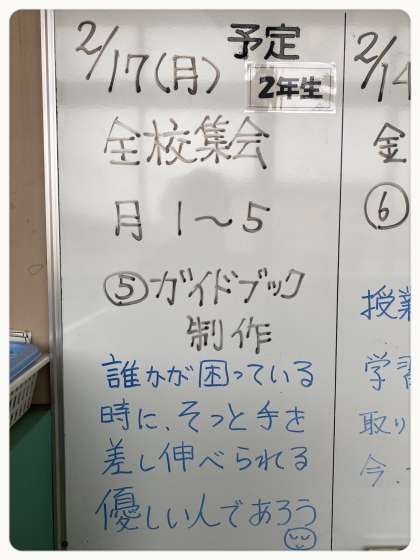 予定
2/17(月)
2年生
全校集会
月 1〜5
⑤ガイドブック
制作
誰かが困っている
時に、そっと手を
差し伸べられる
優しい人であろう
2/14
金
⑥
授業
学習
取り
今、